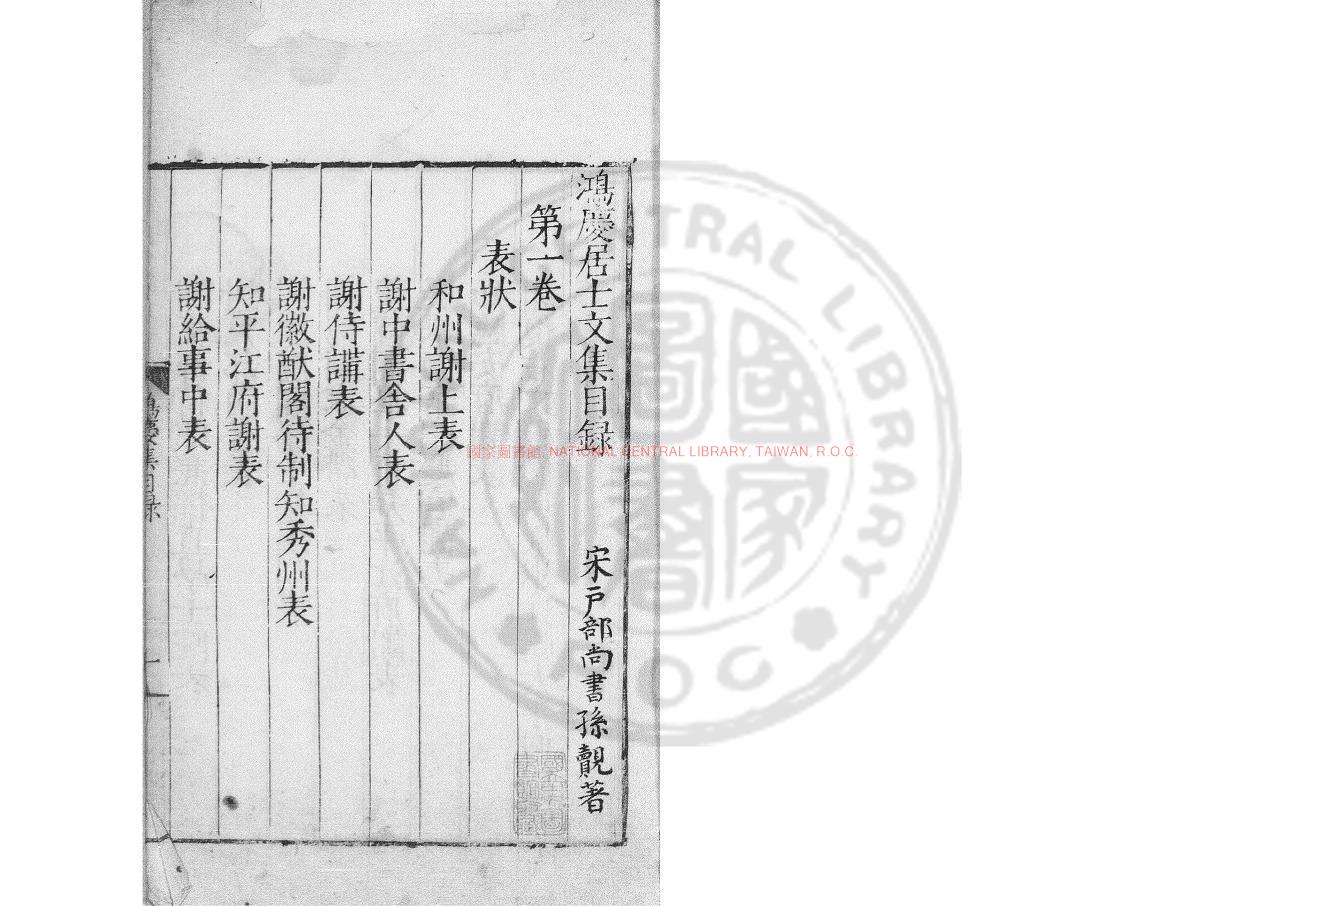 鴻慶居士文集目録 宋戶部尚書孫覿著
第一卷
表狀
和州謝上表
謝中書舍人表
謝侍講表
謝徽猷閣待制知秀州表
知平江府謝表
謝給事中表
鴻慶集目録
國家圖書館, NATIONAL CENTRAL LIBRARY, TAIWAN, R.O.C.